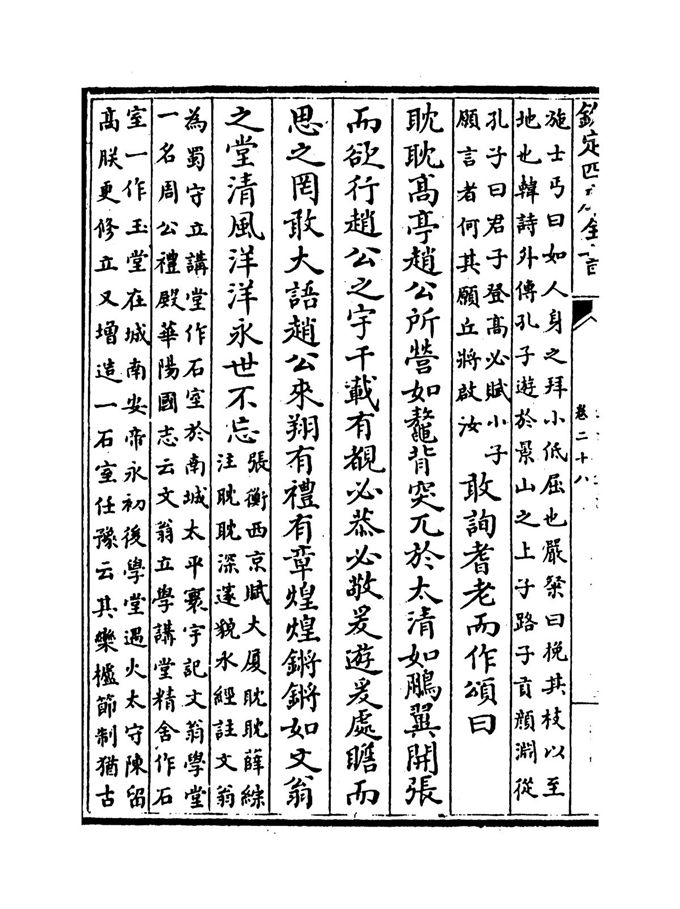 欽定四庫全書
卷二十八
施士丐曰如人身之拜小低屈也嚴粲曰挽其枝以至
地也韓詩外傳孔子遊於景山之上子路子貢顔淵從
孔子曰君子登髙必賦小子
願言者何其願丘將啟汝
敢詢耆老而作頌曰
耽耽髙亭趙公所營如鼇背突兀於太清如鵬翼開張
而欲行趙公之宇千載有覩必恭必敬爰遊爰處瞻而
思之罔敢大語趙公來翔有禮有章煌煌鏘鏘如文翁
之堂清風洋洋永世不忘
張衡西京賦大厦耽耽薛綜
注耽耽深邃貌水經註文翁
為蜀守立講堂作石室於南城太平寰宇記文翁學堂
一名周公禮殿華陽國志云文翁立學講堂精舍作石
室一作玉堂在城南安帝永初後學堂遇火太守陳留
髙朕更修立又增造一石室任豫云其欒櫨節制猶古